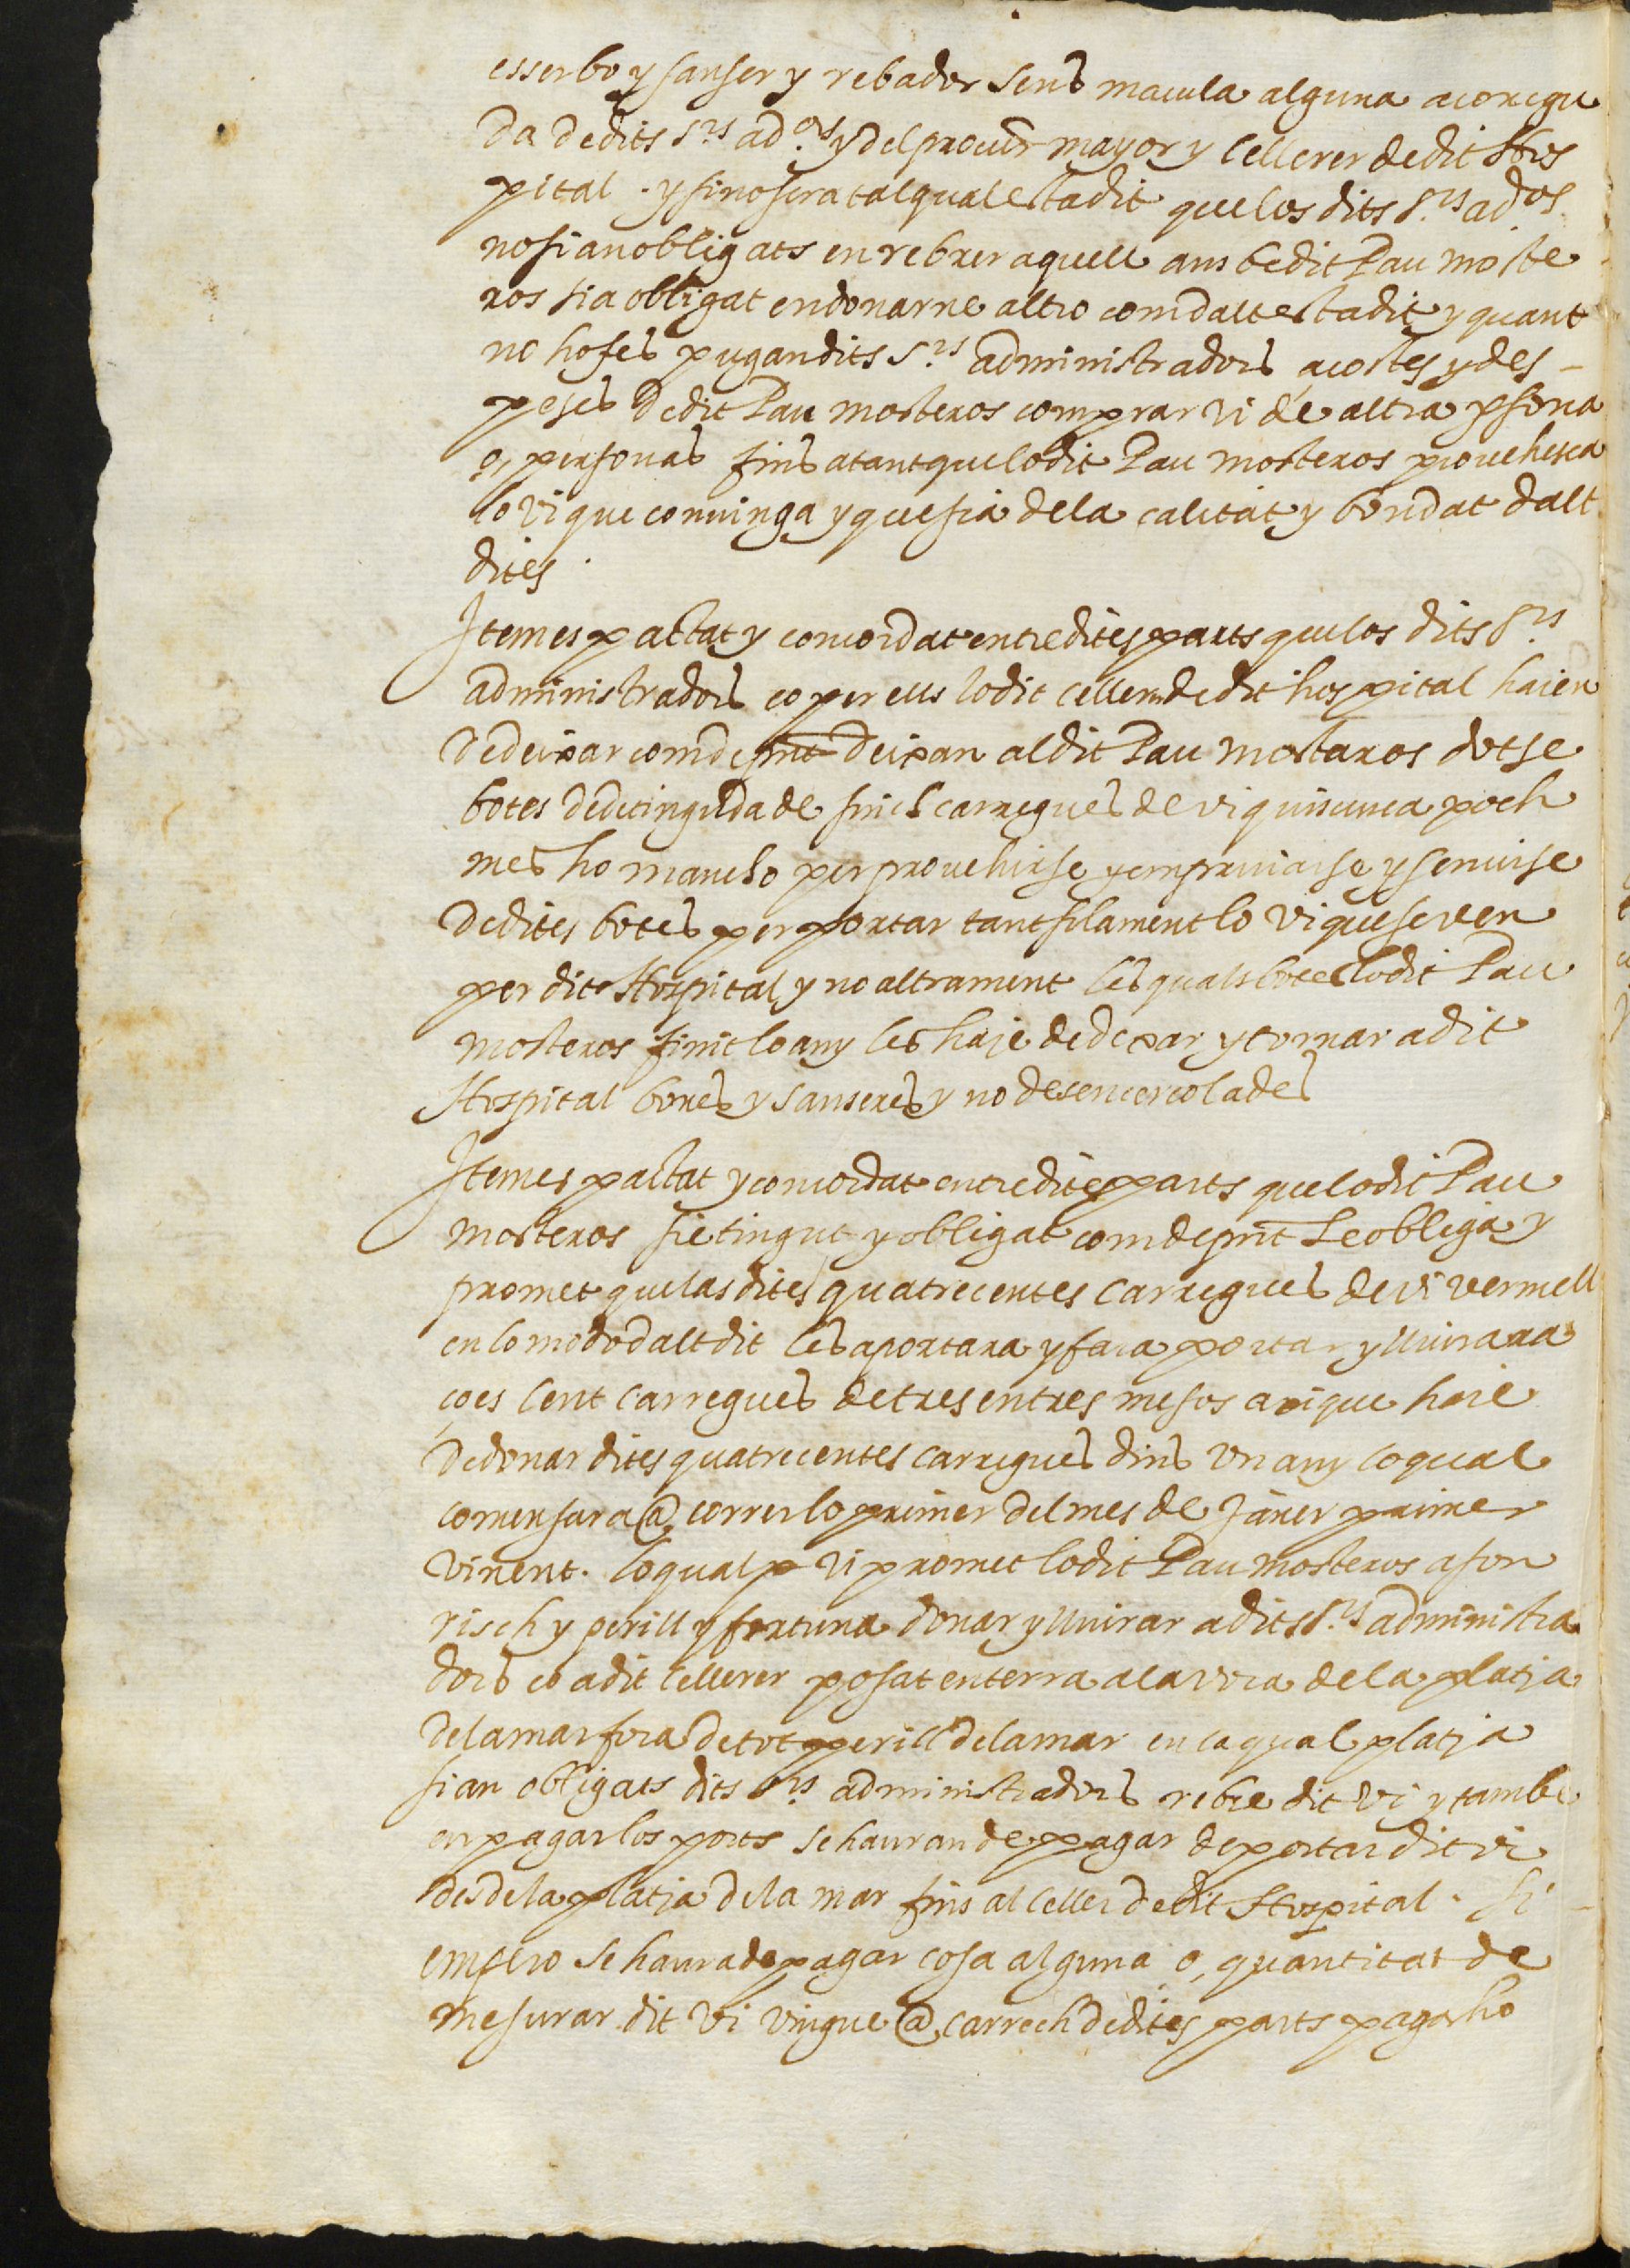 esser bo y sanser y rebador sens macula alguna aconegu
da de dits srs ad.ors y del procur mayor y cellerer de dit Hos
pital . y si no sera tal qual esta dit que los dits s.rs ad.ors
no sian obligats en rebrer aquell ans be dit Pau moste
ros sia obligat en donarne altro com dalt esta dit y quant
no ho fes pugan dits s.rs administradors a costes y des
peses de dit Pau mosteros comprar vi de altra psona
o, personas fins atant que lo dit Pau mosteros provehesca
lo vi que convinga y que sia de la calitat y bondat dalt
dites .
Item es pactat y concordat entre dites parts que los dits s.rs
administradors eo per ells lo dit celleruer de dit hospital haien
de deixar com de pnt deixan al dit Pau mostaros dotse
botes de de tinguda de sinch carregues de vi quiscuna poch
mes ho mancho per provehirse y emprarviarse y servirse
de dites botes per portar tant solament lo vi que se ven
per dit Hospital y no altrament les quals botes lo dit Pau
mosteros finit lo any les haje de dexar y tornar a dit
Hospital bones y sanseres y no desencercolades
Item es pactat y concordat entre dites parts que lo dit Pau
mosteros sie tingut y obligat com de pnt se obliga y
promet que las dites quatrecentes carregues de vi vermell
en lo modo dalt dit les aportara y fara portar y lliurara
ço es cent carregues de tres en tres mesos axi que haie
de donar dites quatrecentes carregues dins un any lo qual
comensara @ correr lo primer del mes de Janer primer
vinent . lo qual vi promet lo dit Pau mosteros a son
risch y perill y fortuna donar y lliurar a dits s.rs administra
dors eo a dit cellerer posat en terra a la vora de la platja
de la mar fora de tot perill de la mar en la qual platja
sian obligats dits s.rs administradors rebre dit vi y tambe
en pagar los ports se hauran de pagar de portar dit vi
des de la platja de la mar fins al celler de dit Hospital . si
empero se haura de pagar cosa alguna o, quantitat de
mesurar dit vi vingue @ carrech de dites parts pagarho